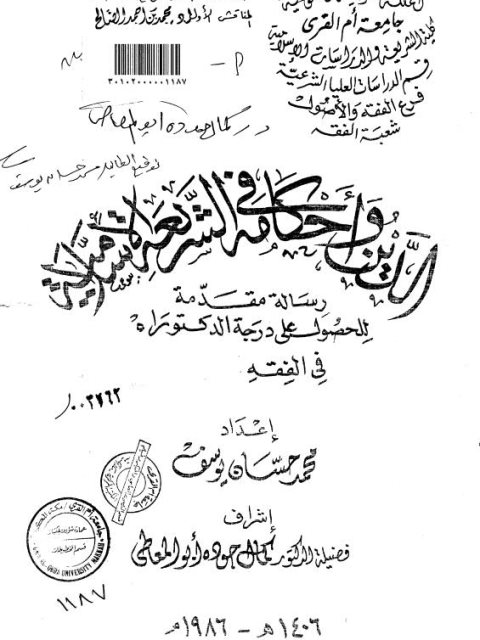 المناقش الأول د. محمد بن أحمد الصالح
جامعة أم القرى
كلية الشريعة والدراسات الإسلامية
قسم الدراسات العليا الشرعية
فرع الفقه والأصول
شعبة الفقه
٣٠١٠٢٠٠٠٠٠١١٨٧
د. كمال حمودة أبو المعاطي
توقيع الطالب محمد حسان يوسف
الدين وأحكامه في الشريعة الإسلامية
رسالة مقدمة
للحصول على درجة الدكتوراه
في الفقه
٠٠٢٧٦٢
إعداد
محمد حسان يوسف
إشراف
فضيلة الدكتور كمال حموده أبو المعاطي
١١٨٧
١٤٠٦ هـ - ١٩٨٦ م